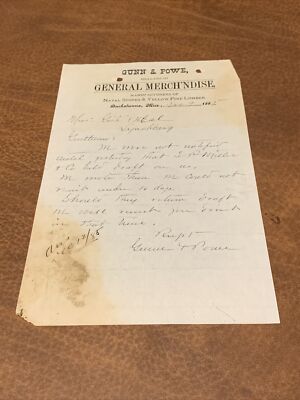 GUNN & POWE,
DEALERS IN
GENERAL MERCH'NDISE,
MANUFACTURERS OF
NAVAL STORES & YELLOW PINE LUMBER.
Buckatunna, Miss., 188
Lynchburg
Gentlemen:
We were not notified
until yesterday that
& Co draft on us.
We wrote them we could not
remit under 10 days.
Should they return draft
we will remit you amt
in that time.
Respt
Gunn & Powe